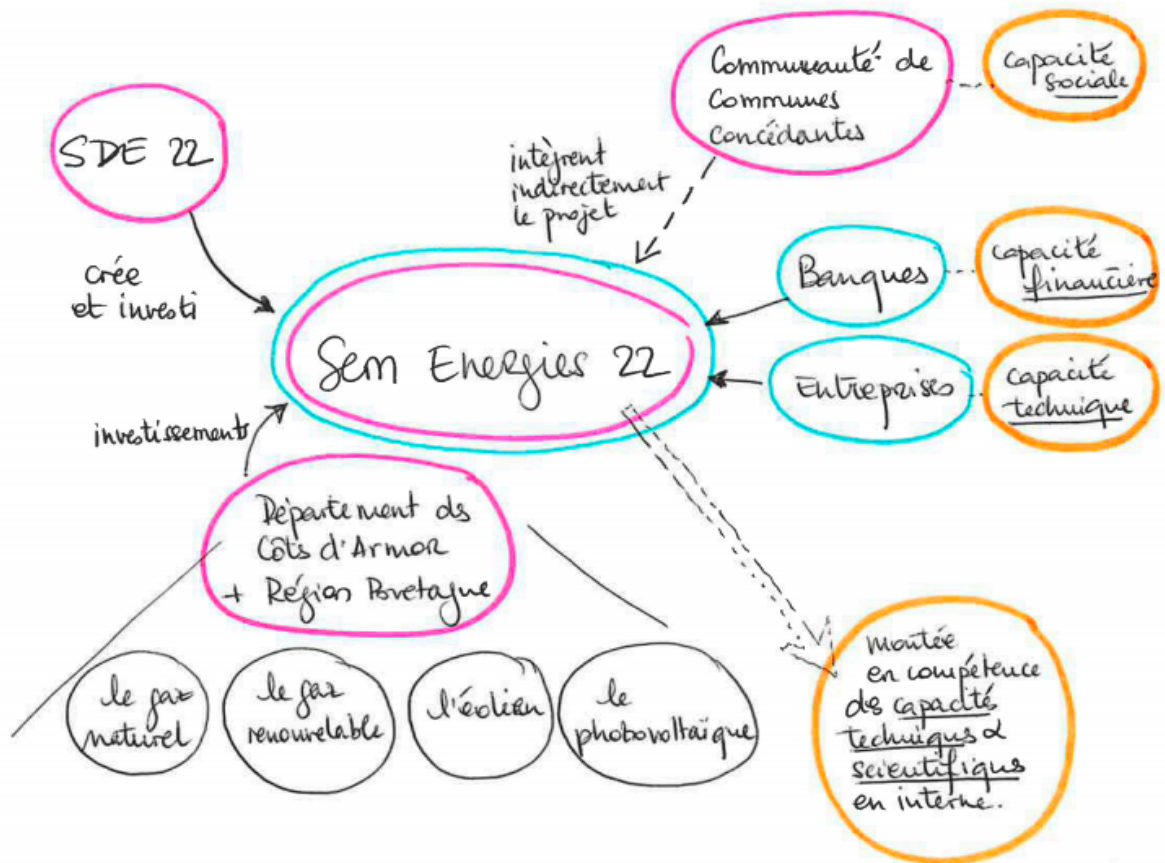 SDE 22
crée
et investi
Communauté de
Communes
concédantes
capacité
sociale
intègrent
indirectement
le projet
Banques
capacité
financière
Sem Energies 22
Entreprises
capacité
technique
investissements
Département ds
Côts d'Armor
+ Région Bretagne
le gaz
naturel
le gaz
renouvelable
l'éolien
le
photovoltaïque
montée
en compétence
ds capacités
techniqus &
scientifiqus
en interne.